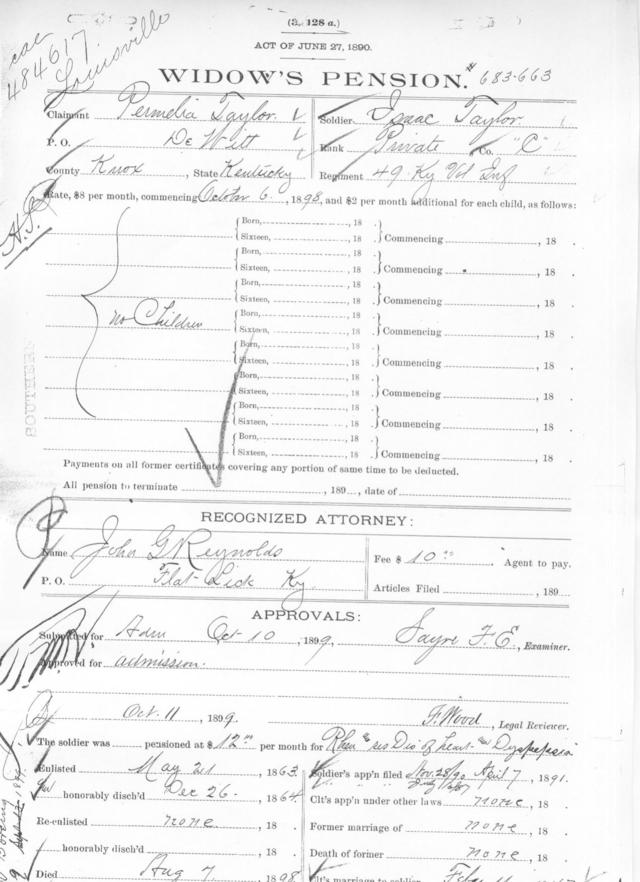 (3. 128 a.)
ACT OF JUNE 27, 1890.
484617
Louisville
WIDOW'S PENSION. # 683-663
Claimant Permelia Taylor Soldier Isaac Taylor
P. O. De Witt Rank Private Co. "C"
County Knox, State Kentucky Regiment 49 Ky Vol Inf
Rate, $8 per month, commencing October 6, 1898, and $2 per month additional for each child, as follows:
Born, , 18 .
Sixteen, , 18 . Commencing , 18 .
Born, , 18 .
Sixteen, , 18 . Commencing , 18 .
Born, , 18 .
Sixteen, , 18 . Commencing , 18 .
no Children
Born, , 18 .
Sixteen, , 18 . Commencing , 18 .
Born, , 18 .
Sixteen, , 18 . Commencing , 18 .
Born, , 18 .
Sixteen, , 18 . Commencing , 18 .
Born, , 18 .
Sixteen, , 18 . Commencing , 18 .
Born, , 18 .
Sixteen, , 18 . Commencing , 18 .
SOUTHERN
Payments on all former certificates covering any portion of same time to be deducted.
All pension to terminate , 189 , date of
RECOGNIZED ATTORNEY:
Name John G Reynolds Fee $ 10.00 Agent to pay.
P. O. Flat-Lick Ky Articles Filed , 189
APPROVALS:
Submitted for Adm Oct 10, 1899, Sayre F. E., Examiner.
Approved for admission.
Oct. 11, 1899 F. Wood, Legal Reviewer.
The soldier was pensioned at $ 12.00 per month for Dis of heart Dyspepsia
Enlisted May 21, 1863 Soldier's app'n filed Nov. 28/90 April 7, 1891.
honorably disch'd Dec 26, 1864 Clt's app'n under other laws none, 18 .
Re-enlisted none, 18 Former marriage of none, 18 .
honorably disch'd , 18 Death of former none, 18 .
Died Aug 7, 1898